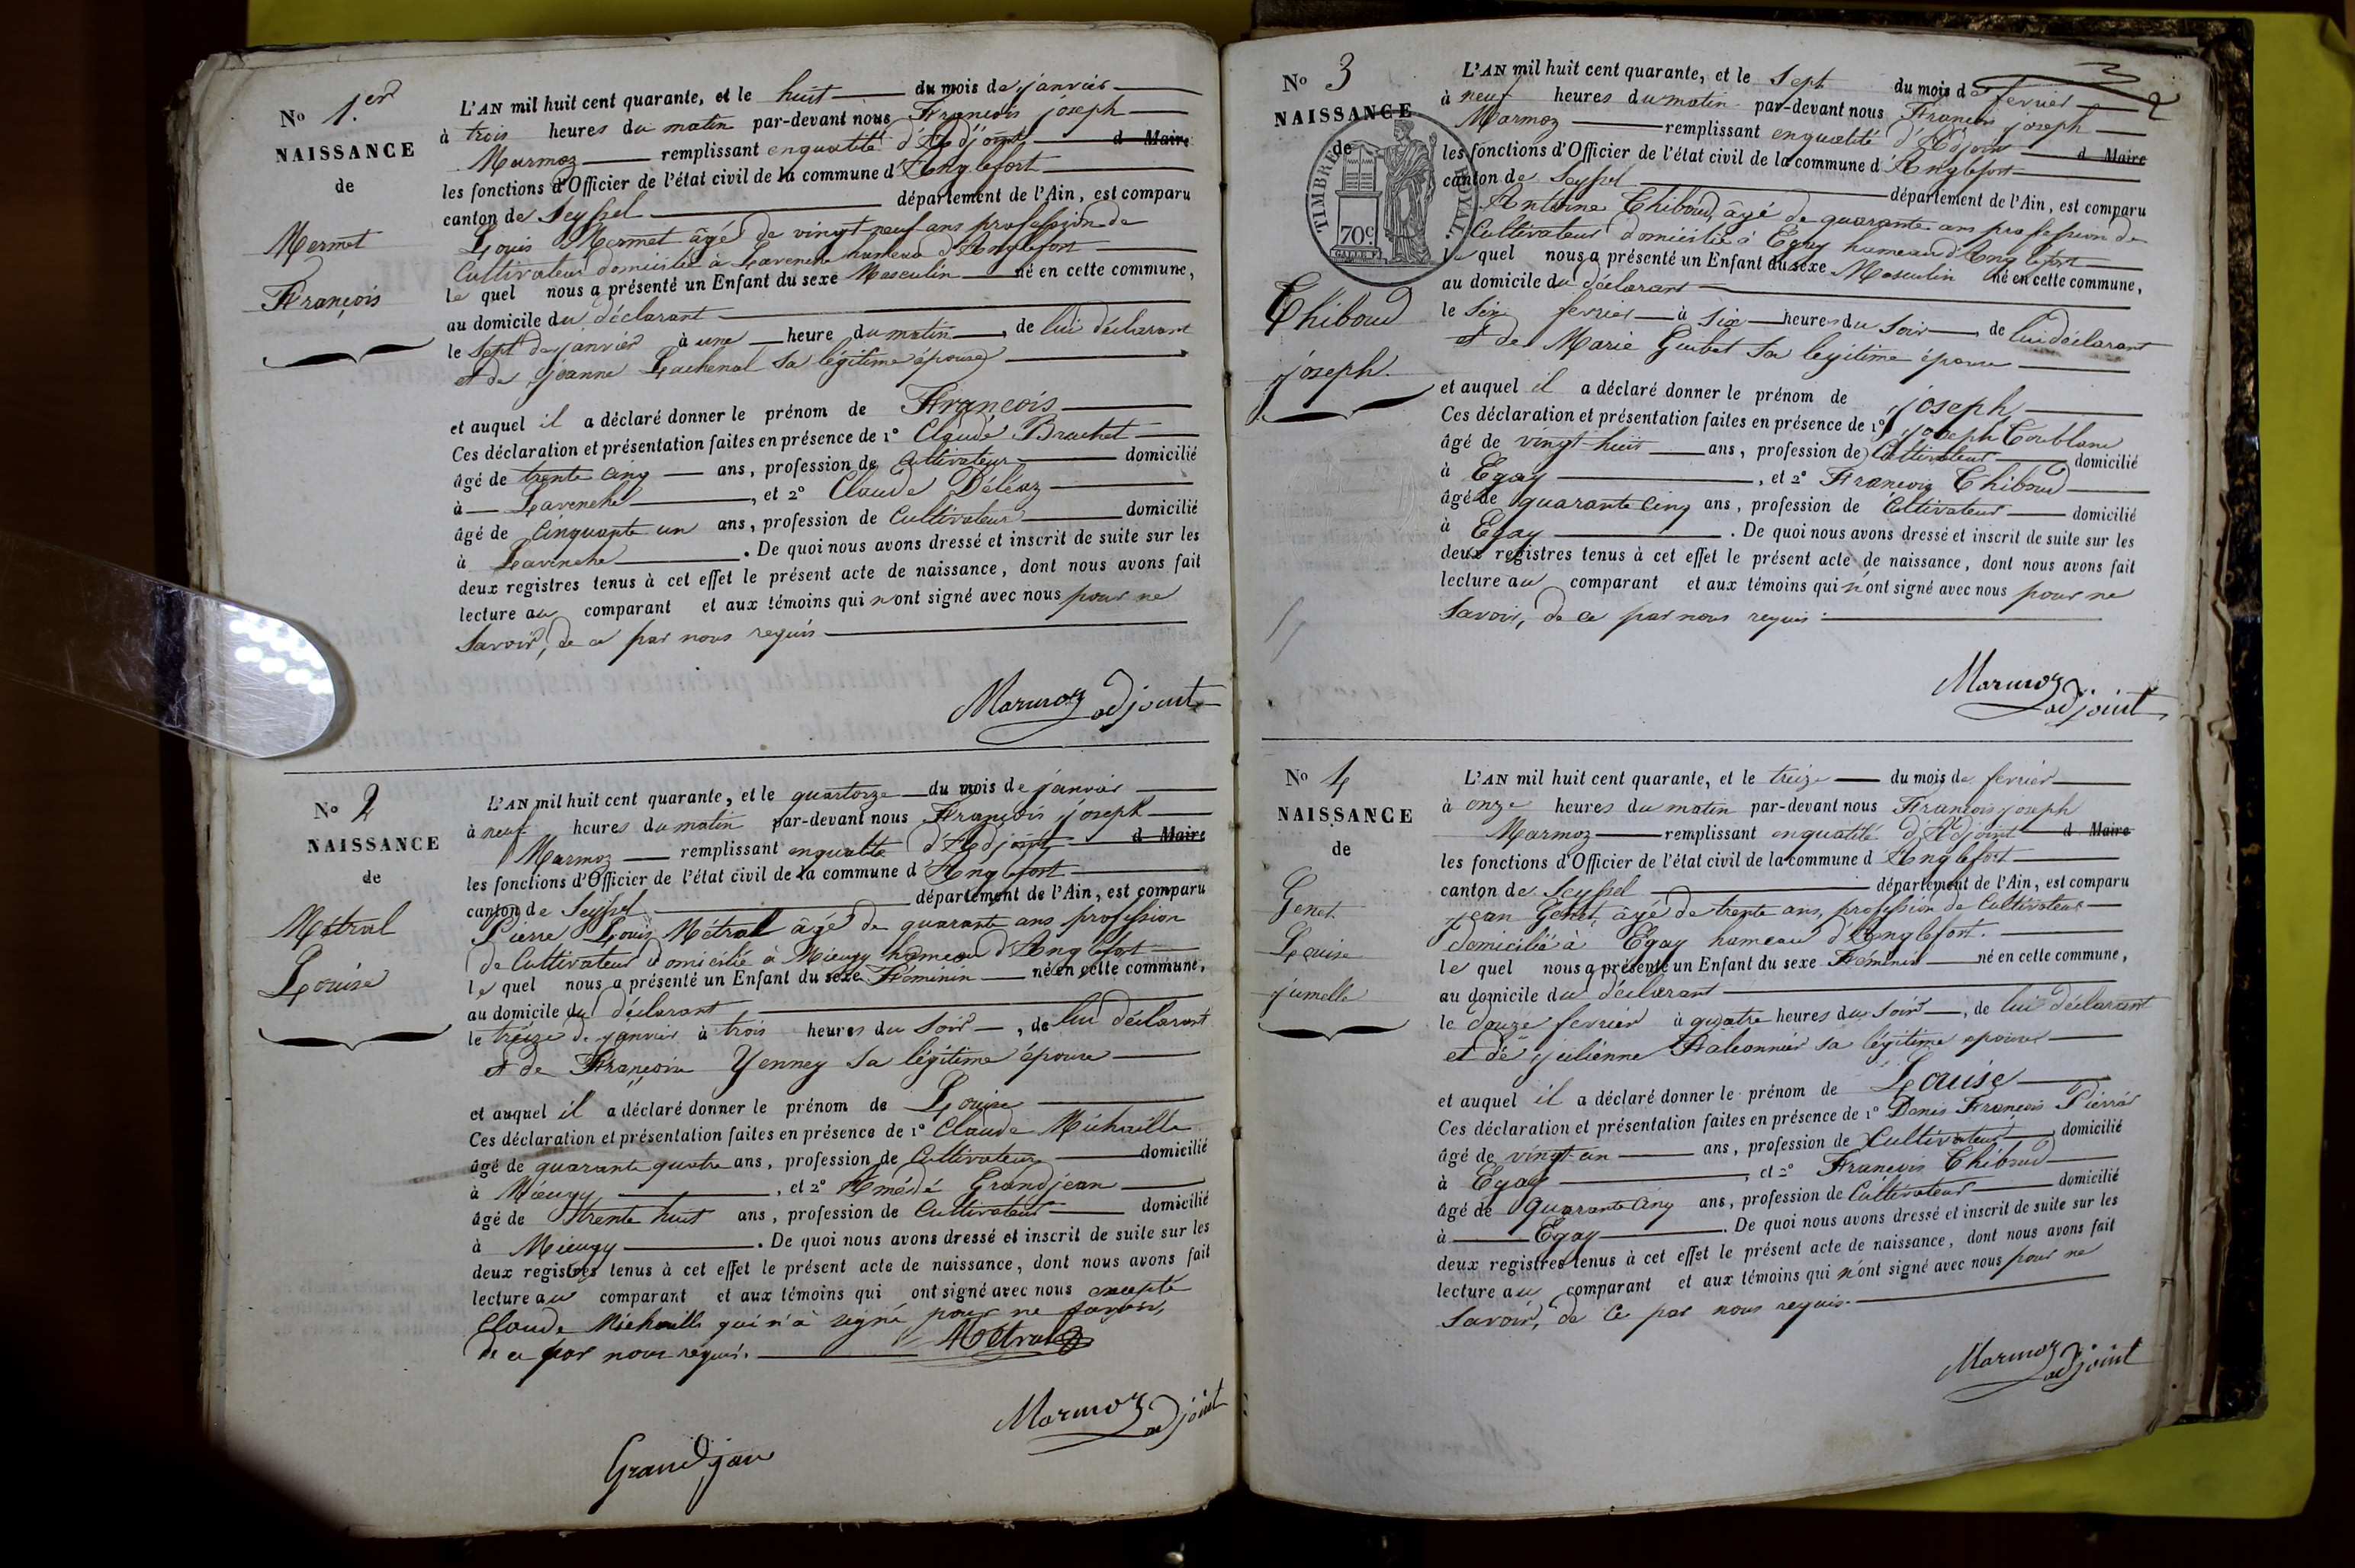 No 1.er
NAISSANCE
de
Mermet
François
L'AN mil huit cent quarante, et le huit du mois de janvier
à trois heures du matin par-devant nous François joseph
Marmoz remplissant en qualité d'Adjoint d Maire
les fonctions d'Officier de l'état civil de la commune d'Anglefort
canton de Seyssel département de l'Ain, est comparu
Louis Mermet âgé de vingt-neuf ans profession de
Cultivateur domicilié à Lavenche hameau d'Anglefort
le quel nous a présenté un Enfant du sexe Masculin né en cette commune,
au domicile du déclarant
le Sept de janvier à une heure du matin, de lui déclarant
et de jeanne Lachenal sa légitime épouse
et auquel il a déclaré donner le prénom de François
Ces déclaration et présentation faites en présence de 1° Claude Brachet
âgé de trente cinq ans, profession de Cultivateur domicilié
à Lavenche, et 2° Claude Déléaz
âgé de Cinquante un ans, profession de Cultivateur domicilié
à Lavenche. De quoi nous avons dressé et inscrit de suite sur les
deux registres tenus à cet effet le présent acte de naissance, dont nous avons fait
lecture au comparant et aux témoins qui n'ont signé avec nous pour ne
Savoir, de ce par nous requis
Marmoz adjoint
No 2
NAISSANCE
de
Métral
Louise
L'AN mil huit cent quarante, et le quartorze du mois de janvier
à neuf heures du matin par-devant nous François joseph
Marmoz remplissant en qualité d'Adjoint d Maire
les fonctions d'Officier de l'état civil de la commune d'Anglefort
canton de Seyssel département de l'Ain, est comparu
Pierre Louis Métral âgé de quarante ans profession
de Cultivateur domicilié à Mieugy hameau d'Anglefort
le quel nous a présenté un Enfant du sexe Féminin né en cette commune,
au domicile du déclarant
le treize de janvier à trois heures du Soir, de lui déclarant
et de Françoise Yenney sa légitime épouse
et auquel il a déclaré donner le prénom de Louise
Ces déclaration et présentation faites en présence de 1° Claude Michaille
âgé de quarante quatre ans, profession de Cultivateur domicilié
à Mieugy, et 2° Amédé Grandjean
âgé de trente huit ans, profession de Cultivateur domicilié
à Mieugy. De quoi nous avons dressé et inscrit de suite sur les
deux registres tenus à cet effet le présent acte de naissance, dont nous avons fait
lecture au comparant et aux témoins qui ont signé avec nous excepté
Claude Michaille qui n'a signé pour ne savoir,
de ce par nous requis. Métral
Marmoz adjoint
Grandjan
No 3
NAISSANCE
de
TIMBRE ROYAL.
70c
Thiboud
joseph.
L'AN mil huit cent quarante, et le Sept du mois de fevrier
à neuf heures du matin par-devant nous François joseph
Marmoz remplissant en qualité d'Adjoint d Maire
les fonctions d'Officier de l'état civil de la commune d'Anglefort
canton de Seyssel département de l'Ain, est comparu
Antoine Thiboud, âgé de quarante ans profession de
Cultivateur domicilié à Egay hameau d'Anglefort
le quel nous a présenté un Enfant du sexe Masculin né en cette commune,
au domicile du déclarant
le Six fevrier à Six heures du Soir, de lui déclarant
et de Marie Gubet sa legitime épouse
et auquel il a déclaré donner le prénom de joseph
Ces déclaration et présentation faites en présence de 1° joseph Coublanc
âgé de vingt-huit ans, profession de Cultivateur domicilié
à Egay, et 2° François Thiboud
âgé de quarante Cinq ans, profession de Cultivateur domicilié
à Egay. De quoi nous avons dressé et inscrit de suite sur les
deux registres tenus à cet effet le présent acte de naissance, dont nous avons fait
lecture au comparant et aux témoins qui n'ont signé avec nous pour ne
Savoir, de ce par nous requis
Marmoz
adjoint
No 4
NAISSANCE
de
Genet
Louise
jumelle
L'AN mil huit cent quarante, et le treize du mois de fevrier
à onze heures du matin par-devant nous François joseph
Marmoz remplissant en qualité d'Adjoint d Maire
les fonctions d'Officier de l'état civil de la commune d'Anglefort
canton de Seyssel département de l'Ain, est comparu
jean Genet, âgé de trente ans, profession de Cultivateur
domicilié à Egay hameau d'Anglefort.
le quel nous a présenté un Enfant du sexe Féminin né en cette commune,
au domicile du déclarant
le douze fevrier à quatre heures du Soir, de lui déclarant
et de julienne Falconnier sa légitime épouse
et auquel il a déclaré donner le prénom de Louise
Ces déclaration et présentation faites en présence de 1° Denis François Pierre
âgé de vingt-un ans, profession de Cultivateur domicilié
à Egay, et 2° François Thiboud
âgé de Quarante Cinq ans, profession de Cultivateur domicilié
à Egay. De quoi nous avons dressé et inscrit de suite sur les
deux registres tenus à cet effet le présent acte de naissance, dont nous avons fait
lecture au comparant et aux témoins qui n'ont signé avec nous pour ne
Savoir, de Ce par nous requis.
Marmoz
adjoint